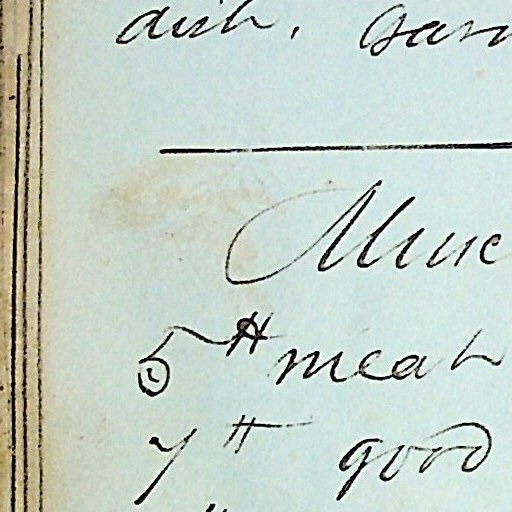 dish. Garn
Minc
5 ℔ meat
7 ℔ good